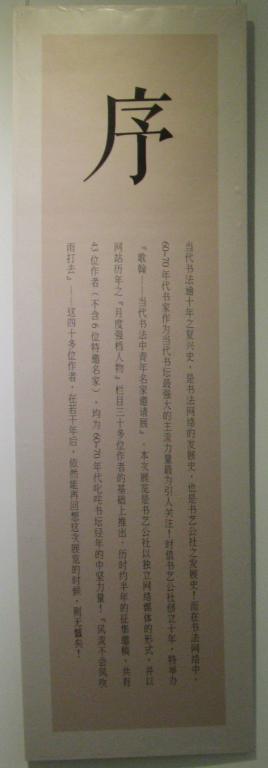 序
当代书法逾十年之复兴史，是书法网络的发展史，也是书艺公社之发展史！而在书法网络中，
60-70年代书家作为当代书坛最强大的主流力量最为引人关注！时值书艺公社创立十年，特举办
『歌翰——当代书法中青年名家邀请展』。本次展览是书艺公社以独立网络媒体的形式，并以
网站历年之『月度强档人物』栏目三十多位作者的基础上推出，历时约半年的征集邀稿，共有
43位作者（不含6位特邀名家），均为60-70年代叱咤书坛经年的中坚力量！『风流不会风吹
雨打去』——这四十多位作者，在若干年后，依然能再回想这次展览的时候，则无憾矣！